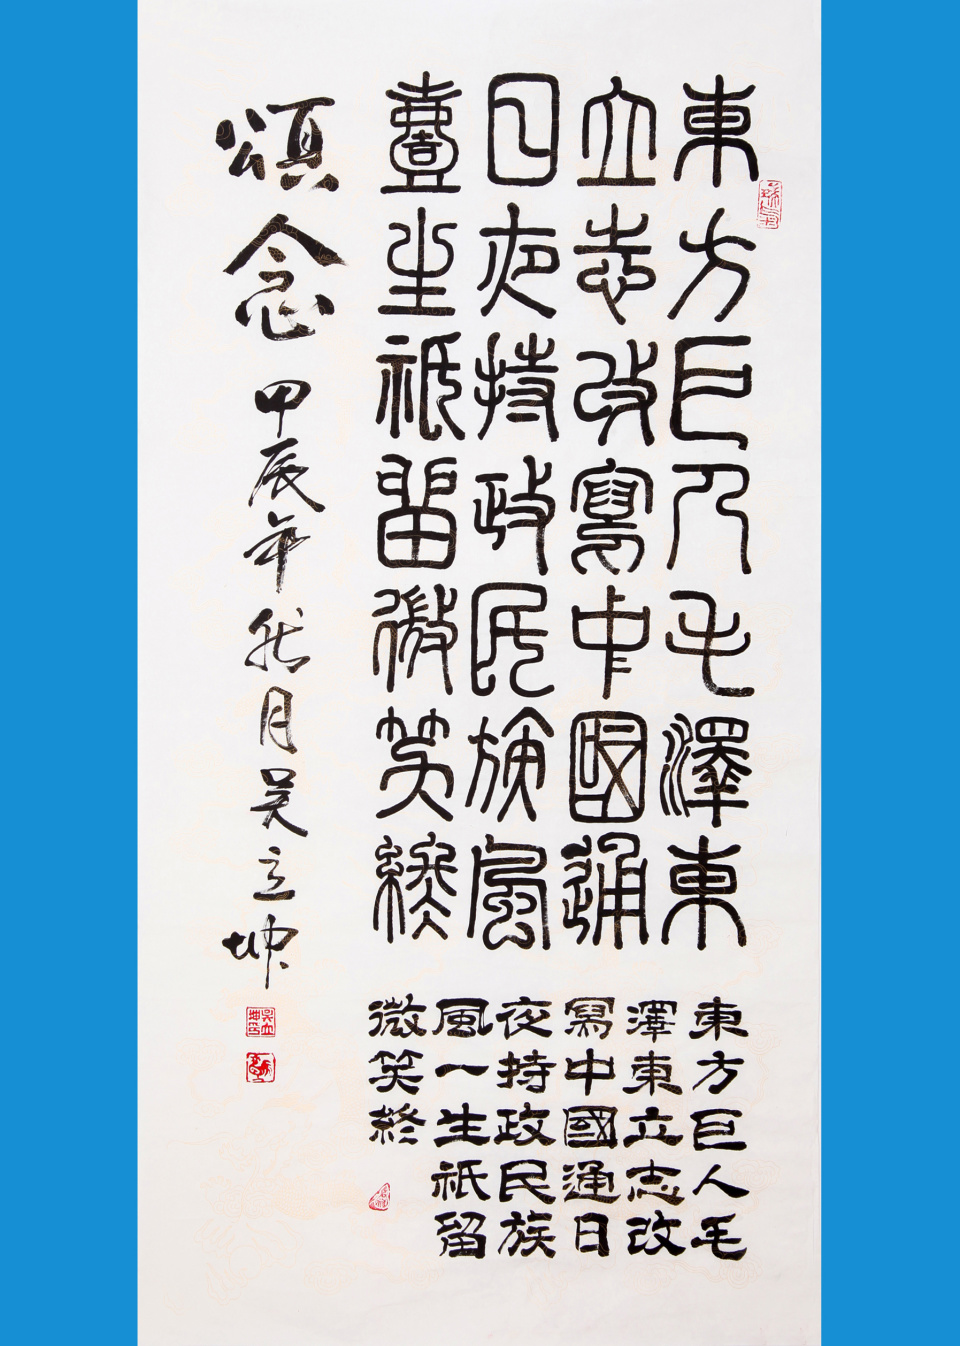 東方巨人毛澤東
立志改寫中國通
日夜持政民族風
壹生祇留微笑終
東方巨人毛
澤東立志改
寫中國通日
夜持政民族
風一生祇留
微笑終
頌念甲辰年秋月吴立坤